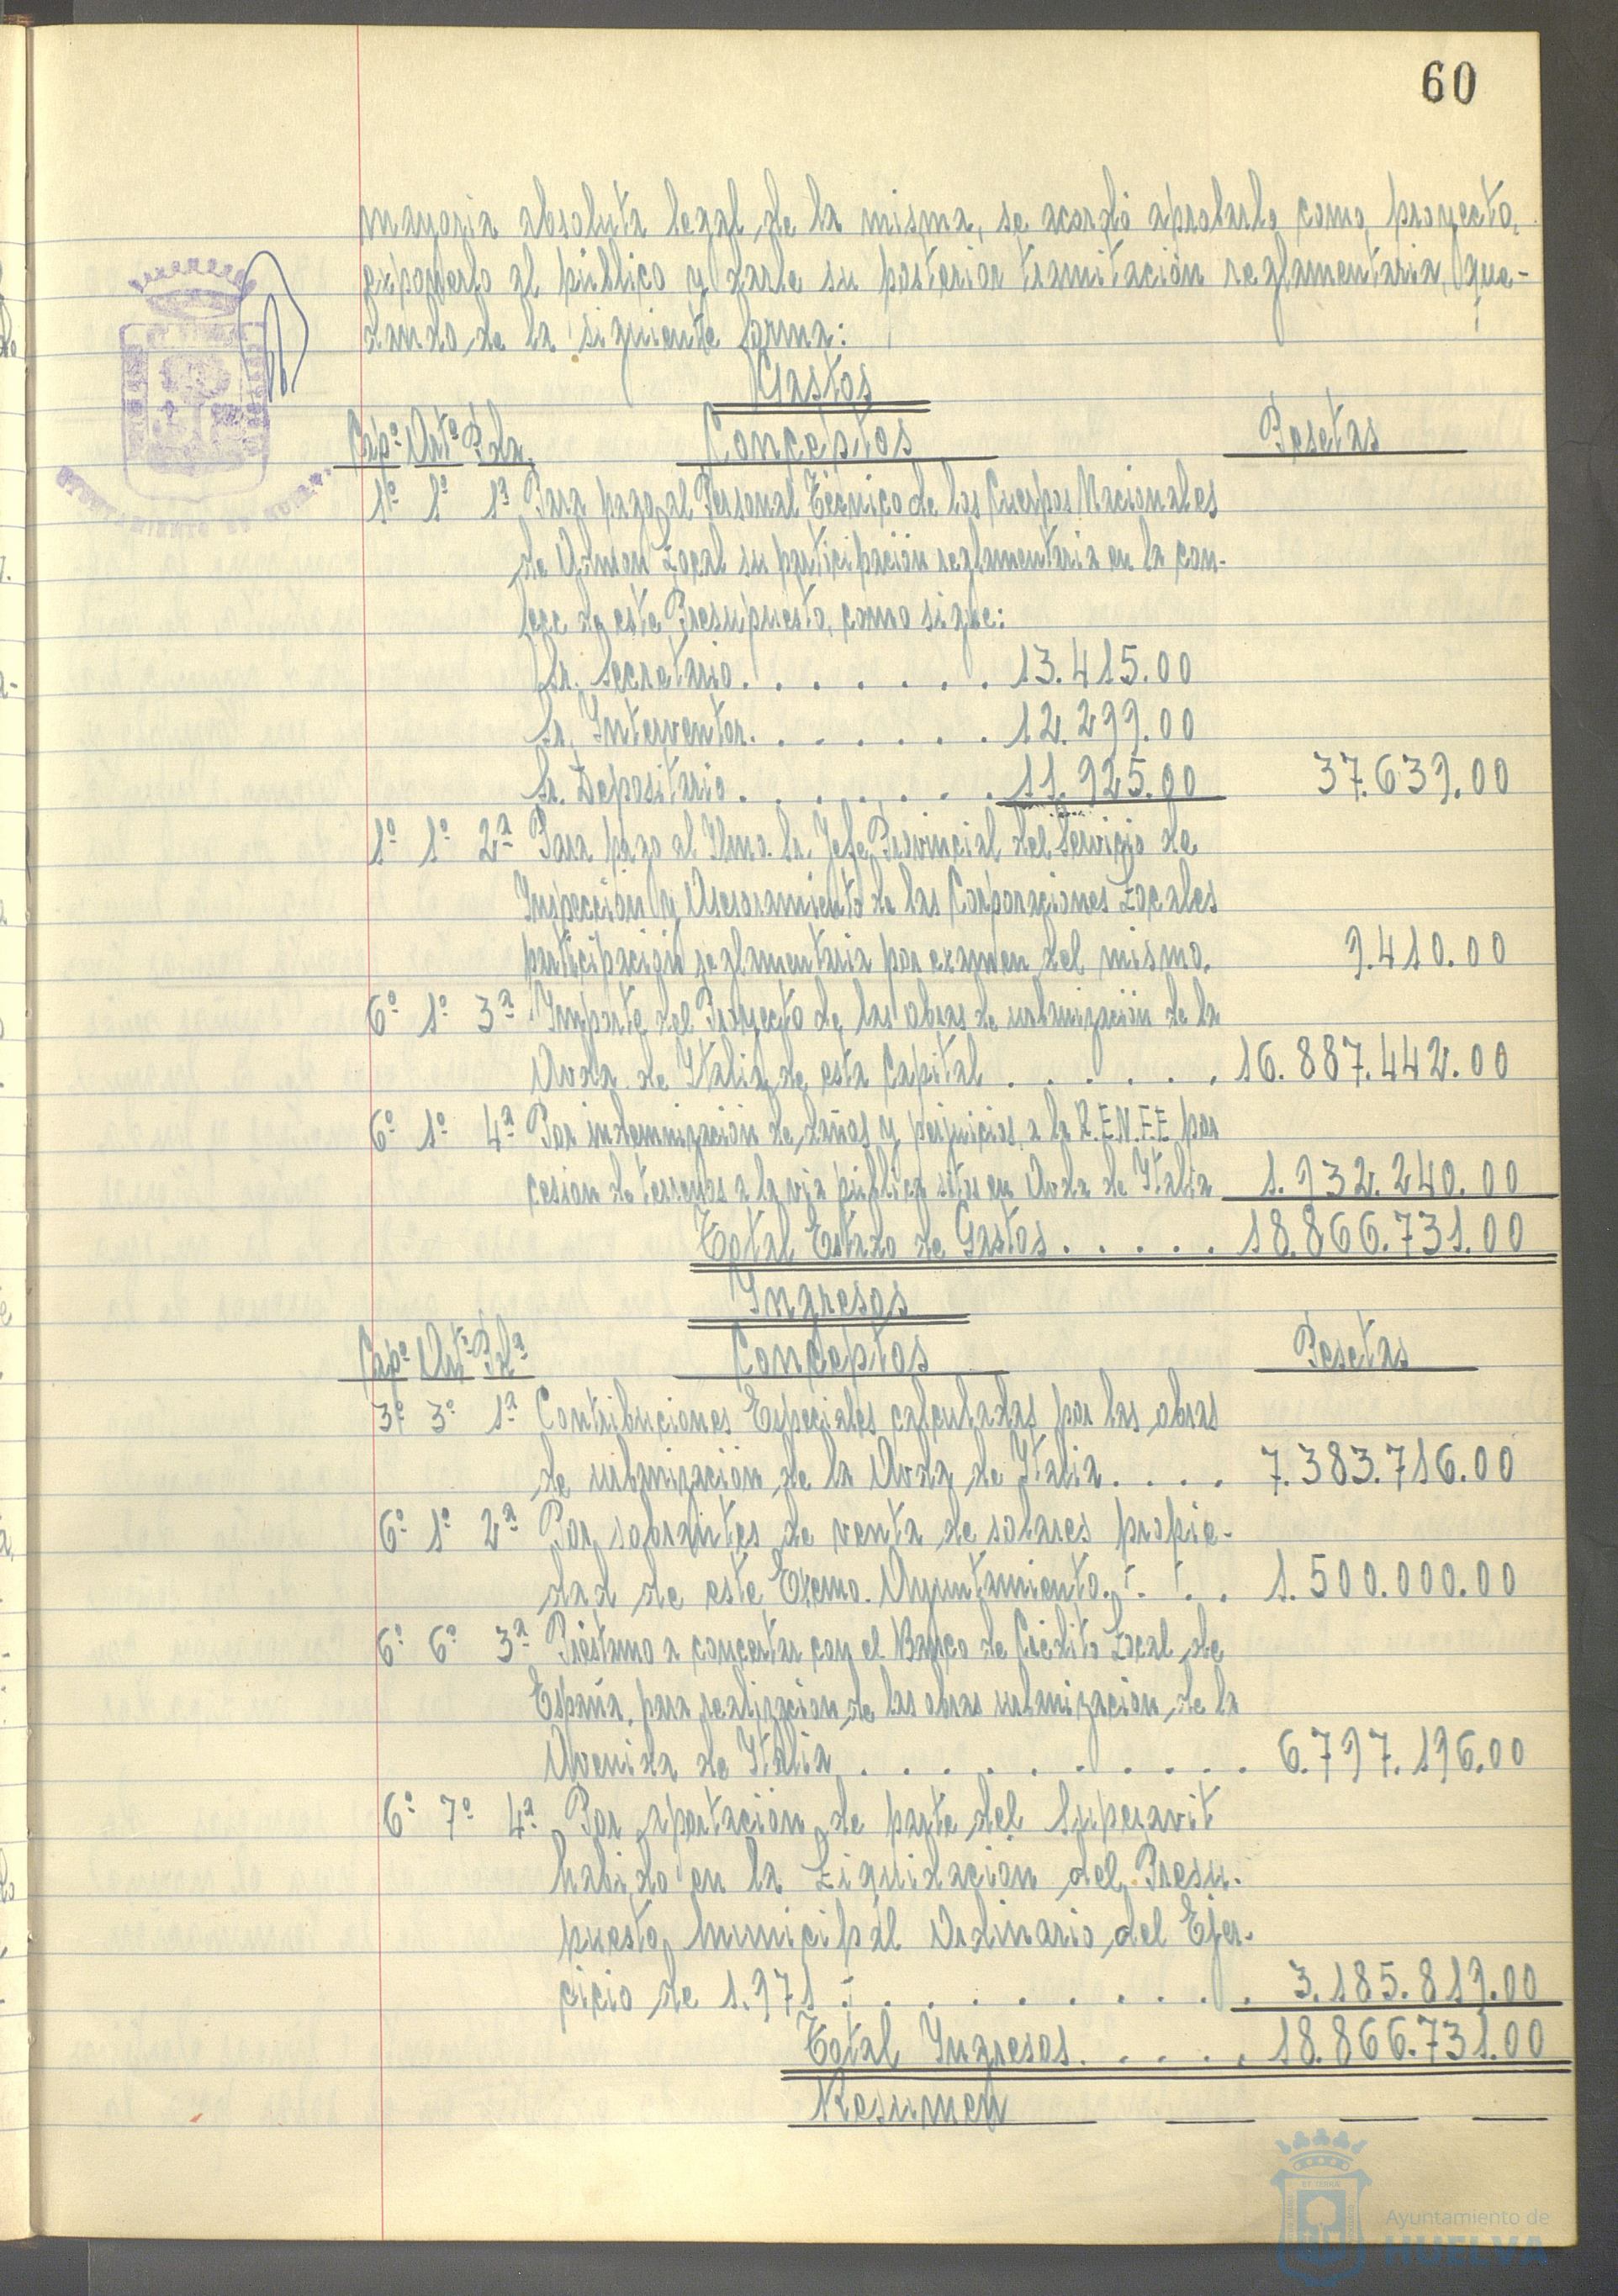 60
mayoria absoluta legal de la misma, se acordó aprobarlo como proyecto,
exponerlo al público y darle su posterior tramitación reglamentaria, que-
dando de la siguiente forma:
Gastos
Capº Artº Pda. Conceptos Pesetas
1º 1º 1ª Para pago al Personal Técnico de los Cuerpos Nacionales
de Admon Local su participación reglamentaria en la con-
fecc de este Presupuesto, como sigue:
Sr. Secretario. . . . . . . 13.415.00
Sr. Interventor. . . . . . . 12.299.00
Sr. Depositario . . . . . . . 11.925.00 37.639.00
1º 1º 2ª Para pago al Ilmo. Sr. Jefe Provincial del Servicio de
Inspección y Asesoramiento de las Corporaciones Locales
participación reglamentaria por examen del mismo. 9.410.00
6º 1º 3ª Importe del Proyecto de las obras de urbanización de la
Avda. de Italia de esta Capital . . . . . . 16.887.442.00
6º 1º 4ª Por indemnización de daños y perjuicios a la R.E.N.F.E por
cesion de terrenos a la via pública sitos en Avda de Italia 1.932.240.00
Total Estado de Gastos . . . . . 18.866.731.00
Ingresos
Capº Artº Pdª Conceptos Pesetas
3º 3º 1ª Contribuciones Especiales calculadas por las obras
de urbanización de la Avda de Italia . . . . 7.383.716.00
6º 1º 2ª Por sobrantes de venta de solares propie-
dad de este Excmo. Ayuntamiento. . . . . 1.500.000.00
6º 6º 3ª Préstamo a concertar con el Banco de Crédito Local de
España, para realización de las obras urbanización de la
Avenida de Italia . . . . . . . . . . 6.797.196.00
6º 7º 4ª Por aportación de parte del Superavit
habido en la Liquidación del Presu-
puesto Municipal Ordinario del Ejer-
cicio de 1.971 . . . . . . . . . . 3.185.819.00
Total Ingresos. . . . . 18.866.731.00
Resumen
AYUNTAMIENTO DE HUELVA
Ayuntamiento de
HUELVA